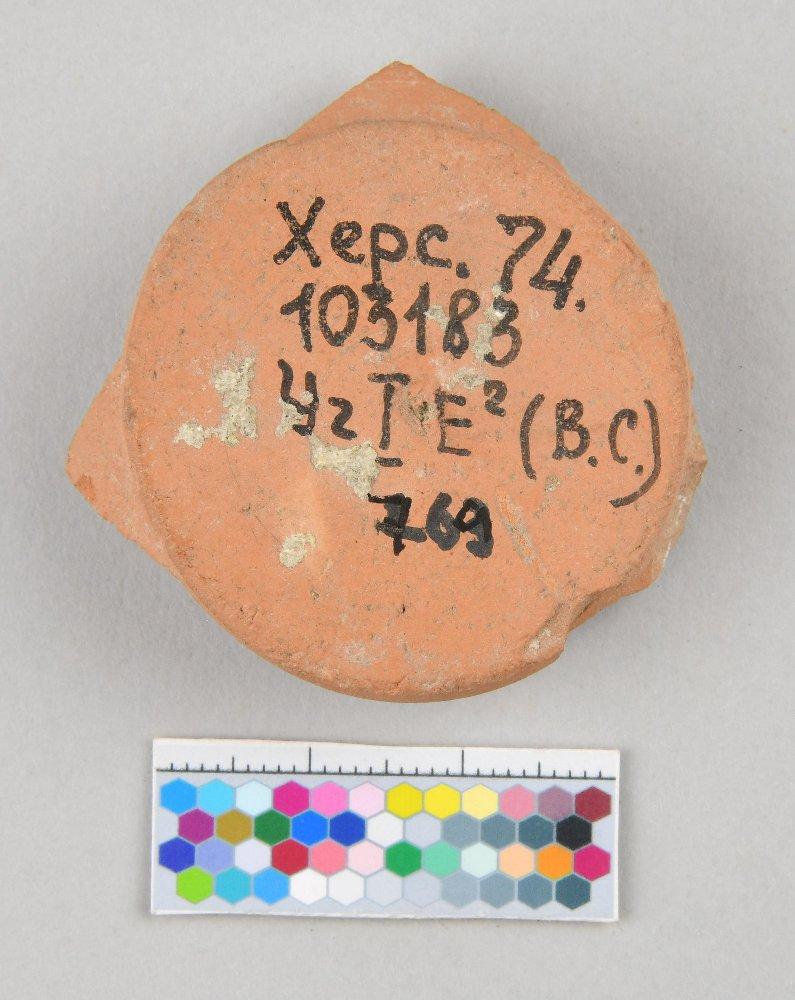 Херс. 74.
103183
Уг I E² (В.С.)
769